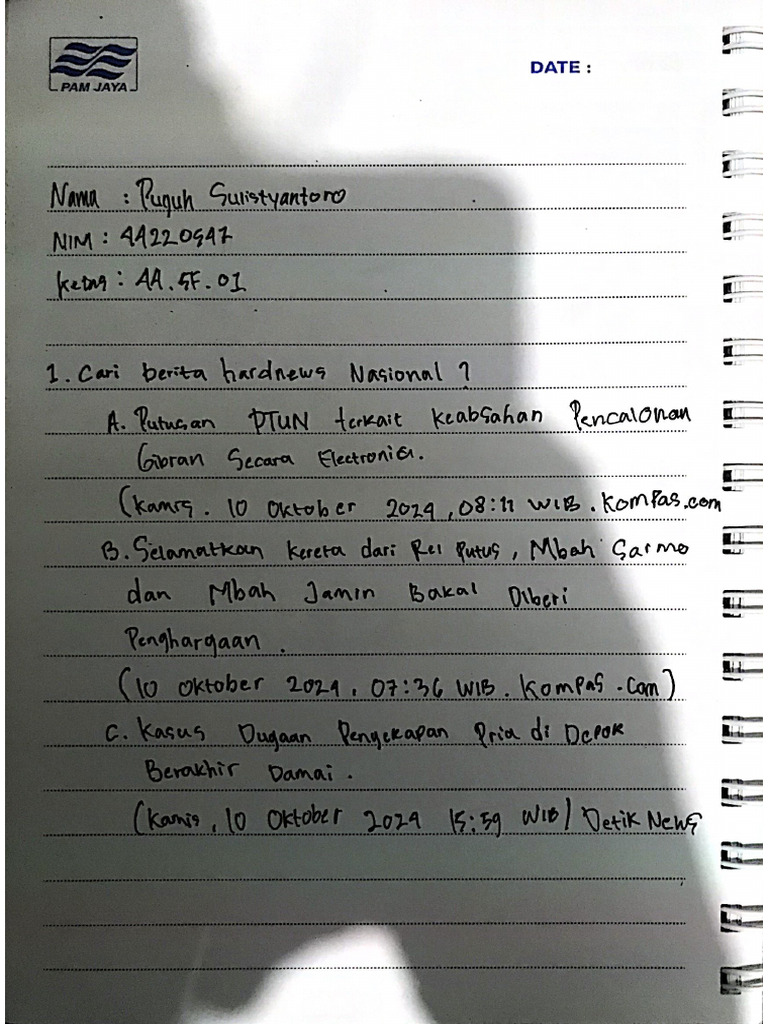 PAM JAYA
DATE :
Nama : Puguh Sulistyantoro
NIM : 44220947
Kelas : 4A.5F.01
1. Cari berita hardnews Nasional ?
A. Putusan PTUN terkait Keabsahan Pencalonan
Gibran Secara Electronic.
(Kamis. 10 Oktober 2024, 08:11 WIB. Kompas.com
B. Selamatkan Kereta dari Rel Putus, Mbah Sarmo
dan Mbah Jamin Bakal Diberi
Penghargaan.
(10 Oktober 2024, 07:36 WIB. Kompas.Com)
C. Kasus Dugaan Penyekapan Pria di Depok
Berakhir Damai.
(Kamis, 10 Oktober 2024 15:59 WIB) Detik News